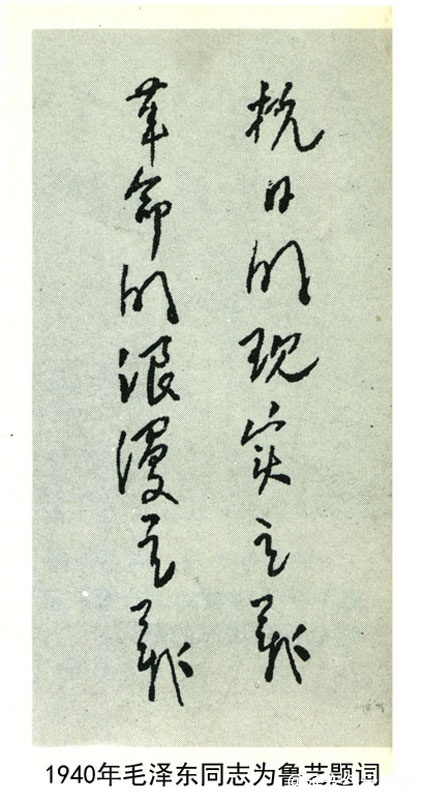 抗日的现实主义
革命的浪漫主义
1940年毛泽东同志为鲁艺题词